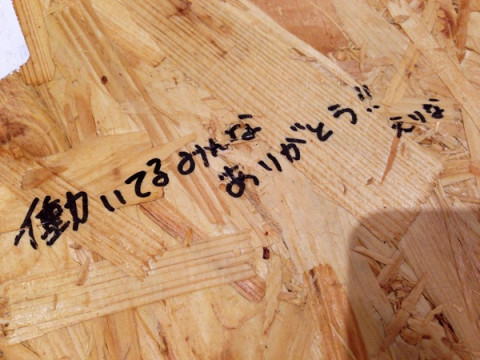 働いてるみんな
ありがとう!!
えりな